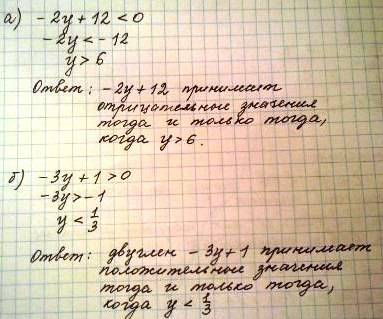 а) -2y + 12 < 0
-2y < -12
y > 6
Ответ: -2y + 12 принимает
отрицательные значения
тогда и только тогда,
когда y > 6.
б) -3y + 1 > 0
-3y > -1
y < 1/3
Ответ: двучлен -3y + 1 принимает
положительные значения
тогда и только тогда,
когда y < 1/3